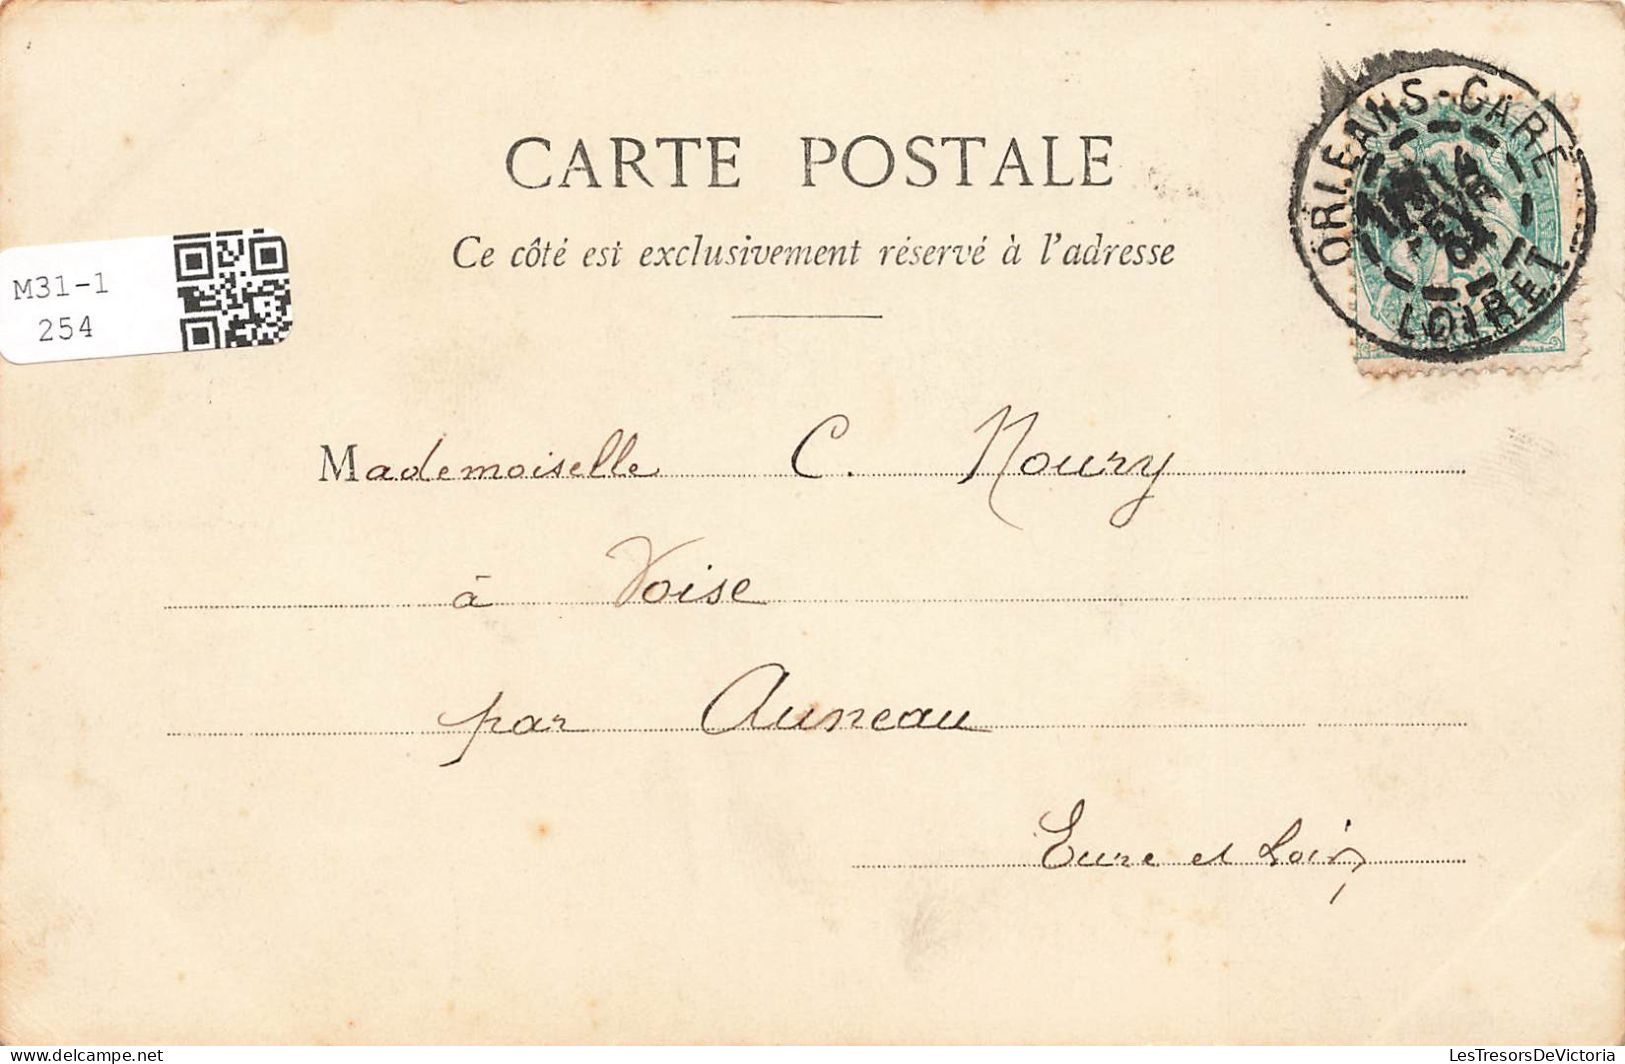 CARTE POSTALE
Ce côté est exclusivement réservé à l'adresse
M31-1
254
ORLEANS-GARE
LOIRET
Mademoiselle C. Noury
à Voise
par Auneau
Eure et Loir
LesTresorsDeVictoria